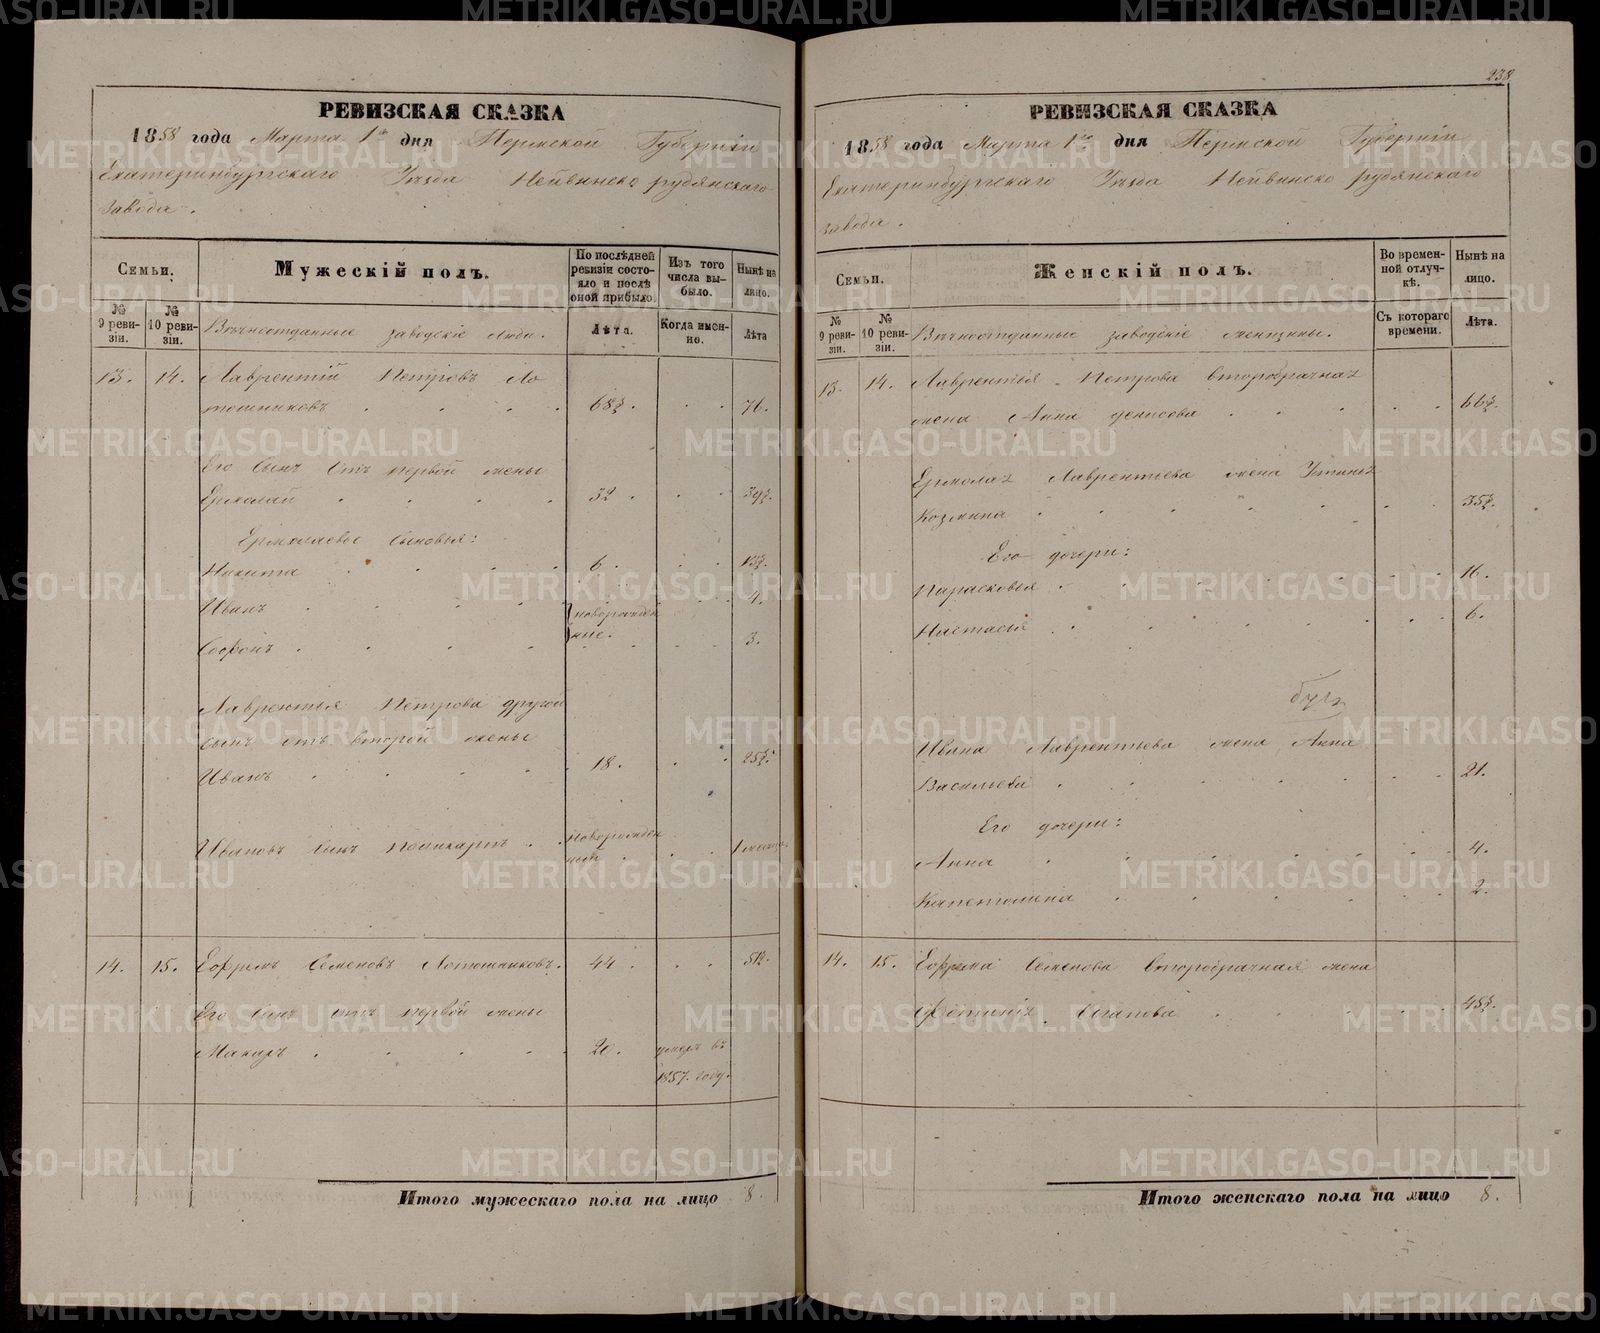 РЕВИЗСКАЯ СКАЗКА
1858 года Марта 1го дня Пермской Губерніи
Екатеринбургскаго Уѣзда Нейвинско рудянскаго
завода.
Семьи.
Мужескій полъ.
По послѣдней ревизіи состояло и послѣ оной прибыло.
Изъ того числа выбыло.
Нынѣ на лицо.
№ 9 ревизіи.
№ 10 ревизіи.
Вѣчноотданные заводскіе люди.
Лѣта.
Когда именно.
Лѣта
13. 14. Лаврентій Петровъ Ло
тошниковъ 68½. 76.
Его сынъ отъ первой жены
Ермолай 32. 39½.
Ермолаевы сыновья:
Никита 6. 13½.
Иванъ новорожден 4.
Софонъ ные. 3.
Лаврентья Петрова другой
сынъ отъ второй жены
Иванъ 18. 25½.
Ивановъ сынъ Поликарпъ новорожден
ный 1 месяца
14. 15. Ефремъ Семеновъ Лотошниковъ. 44. 51½.
Его сынъ отъ первой жены
Макаръ 20. умеръ въ
1857. году.
Итого мужескаго пола на лицо 8.
238
РЕВИЗСКАЯ СКАЗКА
1858 года Марта 1го дня Пермской Губерніи
Екатеринбургскаго Уѣзда Нейвинско рудянскаго
завода.
Семьи.
Женскій полъ.
Во временной отлучкѣ.
Нынѣ на лицо.
№ 9 ревизіи.
№ 10 ревизіи.
Вѣчноотданные заводскіе женщины.
Съ котораго времени.
Лѣта.
13. 14. Лаврентья Петрова второбрачная
жена Анна Денисова 66½.
Ермолая Лаврентьева жена Устинья
Козмина 35½.
Его дочери:
Парасковья 16.
Настасья 6.
Ивана Лаврентьева жена Анна
Васильева 21.
Его дочери:
Анна 4.
Капетолина 2.
14. 15. Ефрема Семенова второбрачная жена
Фотинія 48½.
Итого женскаго пола на лицо 8.
METRIKI.GASO-URAL.RU